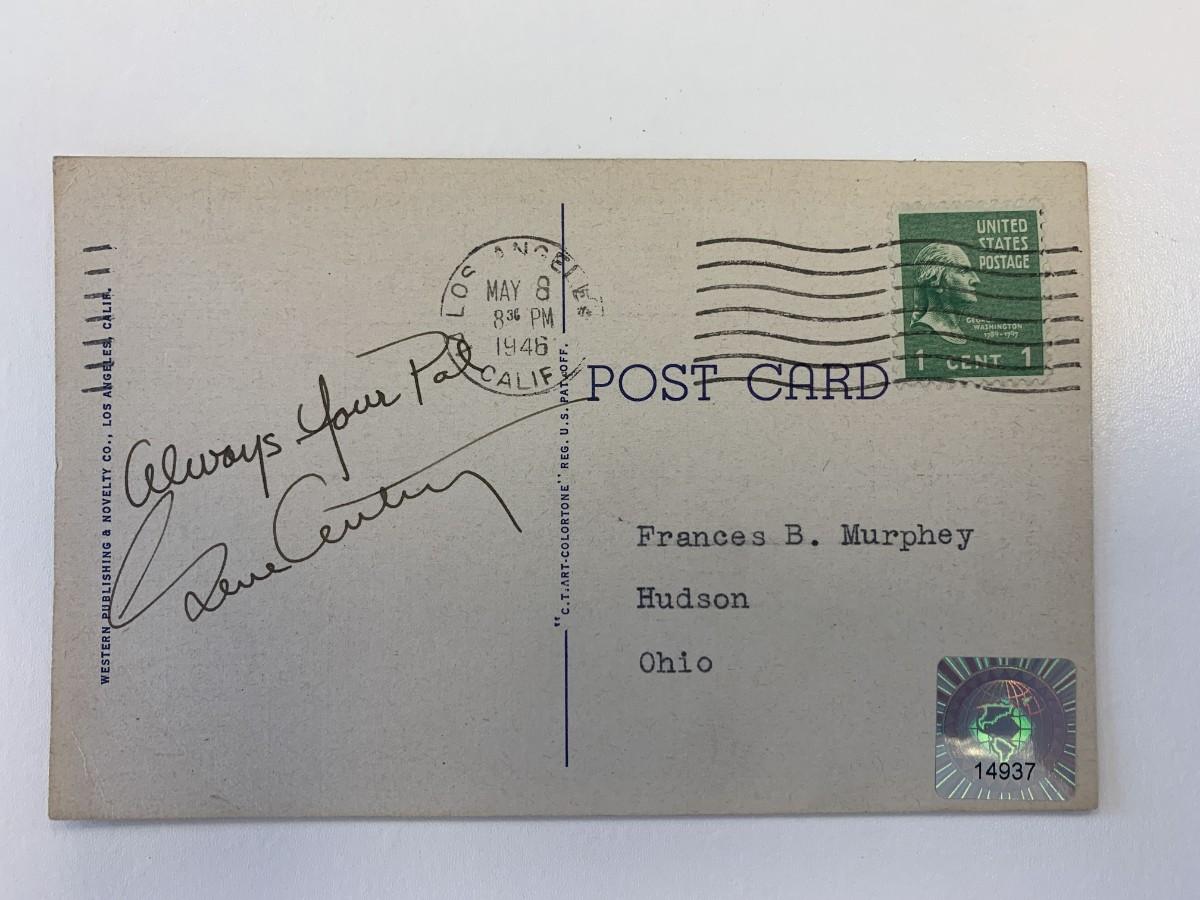 WESTERN PUBLISHING & NOVELTY CO., LOS ANGELES, CALIF.
Always Your Pal
Gene Autry
LOS ANGELES
MAY 8
8 30 PM
1946
CALIF
"C.T.ART-COLORTONE" REG. U.S. PAT. OFF.
UNITED
STATES
POSTAGE
GEORGE
WASHINGTON
1789-1797
1 CENT 1
POST CARD
Frances B. Murphey
Hudson
Ohio
14937